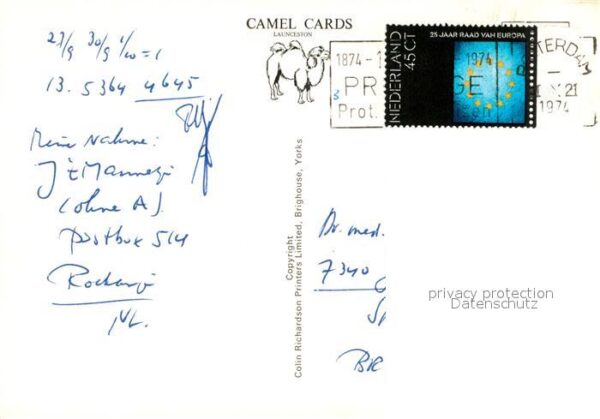 CAMEL CARDS
LAUNCESTON
27/9 30/9 1/10 = 1
13. 5364 4645
Meine Nahme:
(ohne A).
postbox 514
NL.
Copyright
Colin Richardson Printers Limited, Brighouse, Yorks
25 JAAR RAAD VAN EUROPA
NEDERLAND
45CT
1874-1974
Prot.
TERDAM
21
1974
Dr. med.
7340
privacy protection
Datenschutz